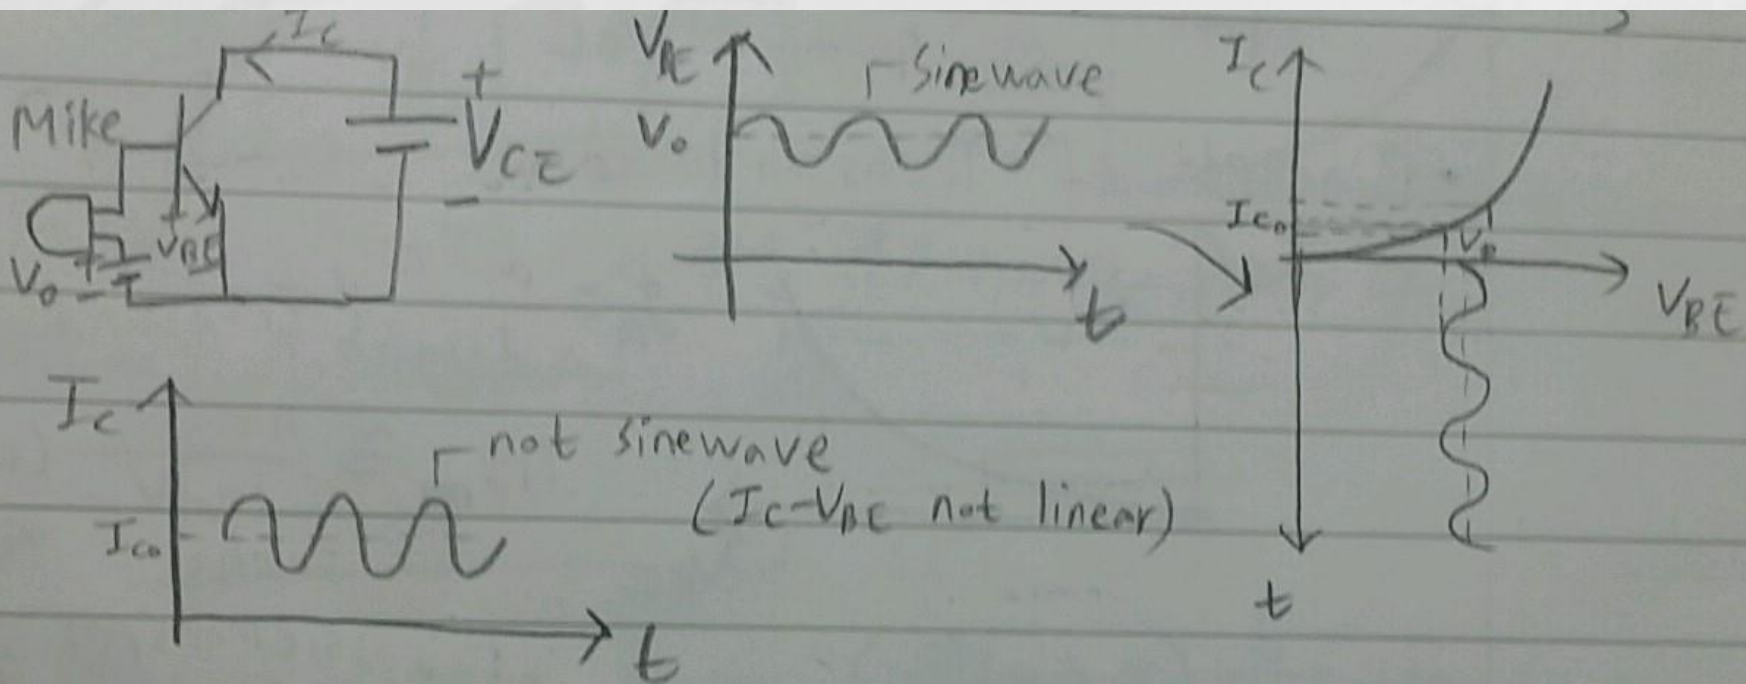 Ic
Mike
+
VCE
-
+
VBE
-
V0
+
-
VBE
V0
sinewave
t
Ic
Ic0
V0
VBE
t
Ic
Ic0
not sinewave
(IC-VBE not linear)
t